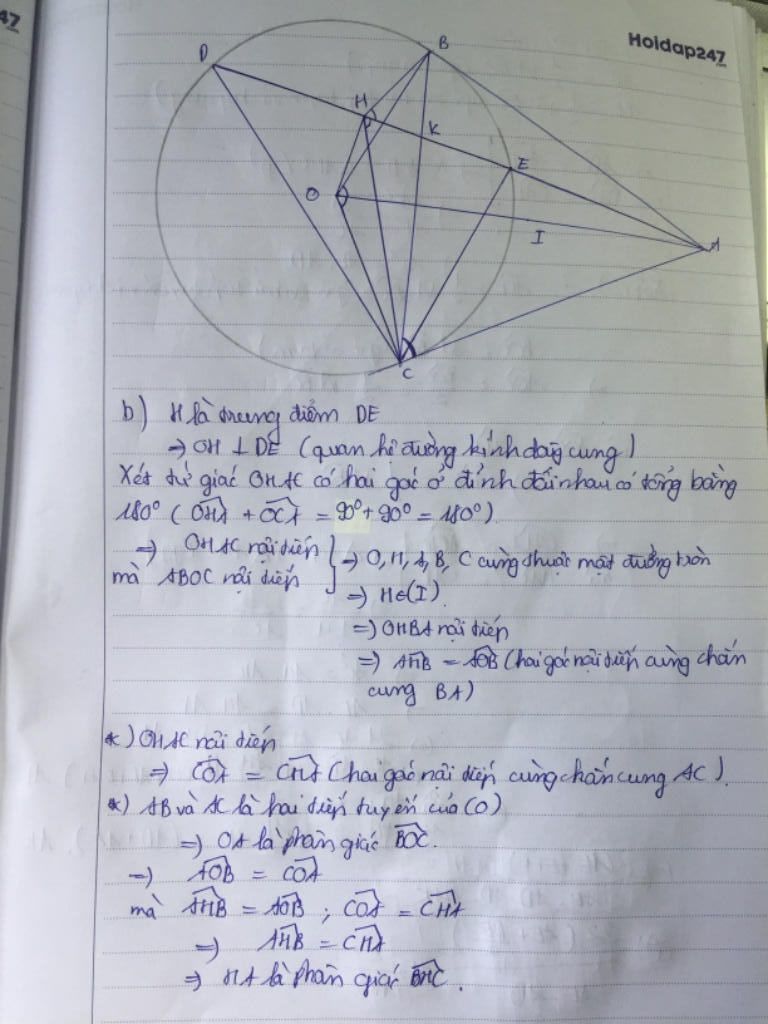 47
Hoidap247
.com
D
B
H
K
E
O
I
A
C
b) H là trung điểm DE
⇒ OH ⊥ DE (quan hệ đường kính dây cung)
Xét tứ giác OHAC có hai góc ở đỉnh đối nhau có tổng bằng
180° (OHA + OCA = 90° + 90° = 180°)
⇒ OHAC nội tiếp
mà ABOC nội tiếp
⇒ O, H, A, B, C cùng thuộc một đường tròn
⇒ H∈(I)
⇒ OHBA nội tiếp
⇒ AHB = AOB (hai góc nội tiếp cùng chắn
cung BA)
*) OHAC nội tiếp
⇒ COA = CHA (hai góc nội tiếp cùng chắn cung AC).
*) AB và AC là hai tiếp tuyến của (O)
⇒ OA là phân giác BOC.
⇒ AOB = COA
mà AHB = AOB ; COA = CHA
⇒ AHB = CHA
⇒ HA là phân giác BHC.